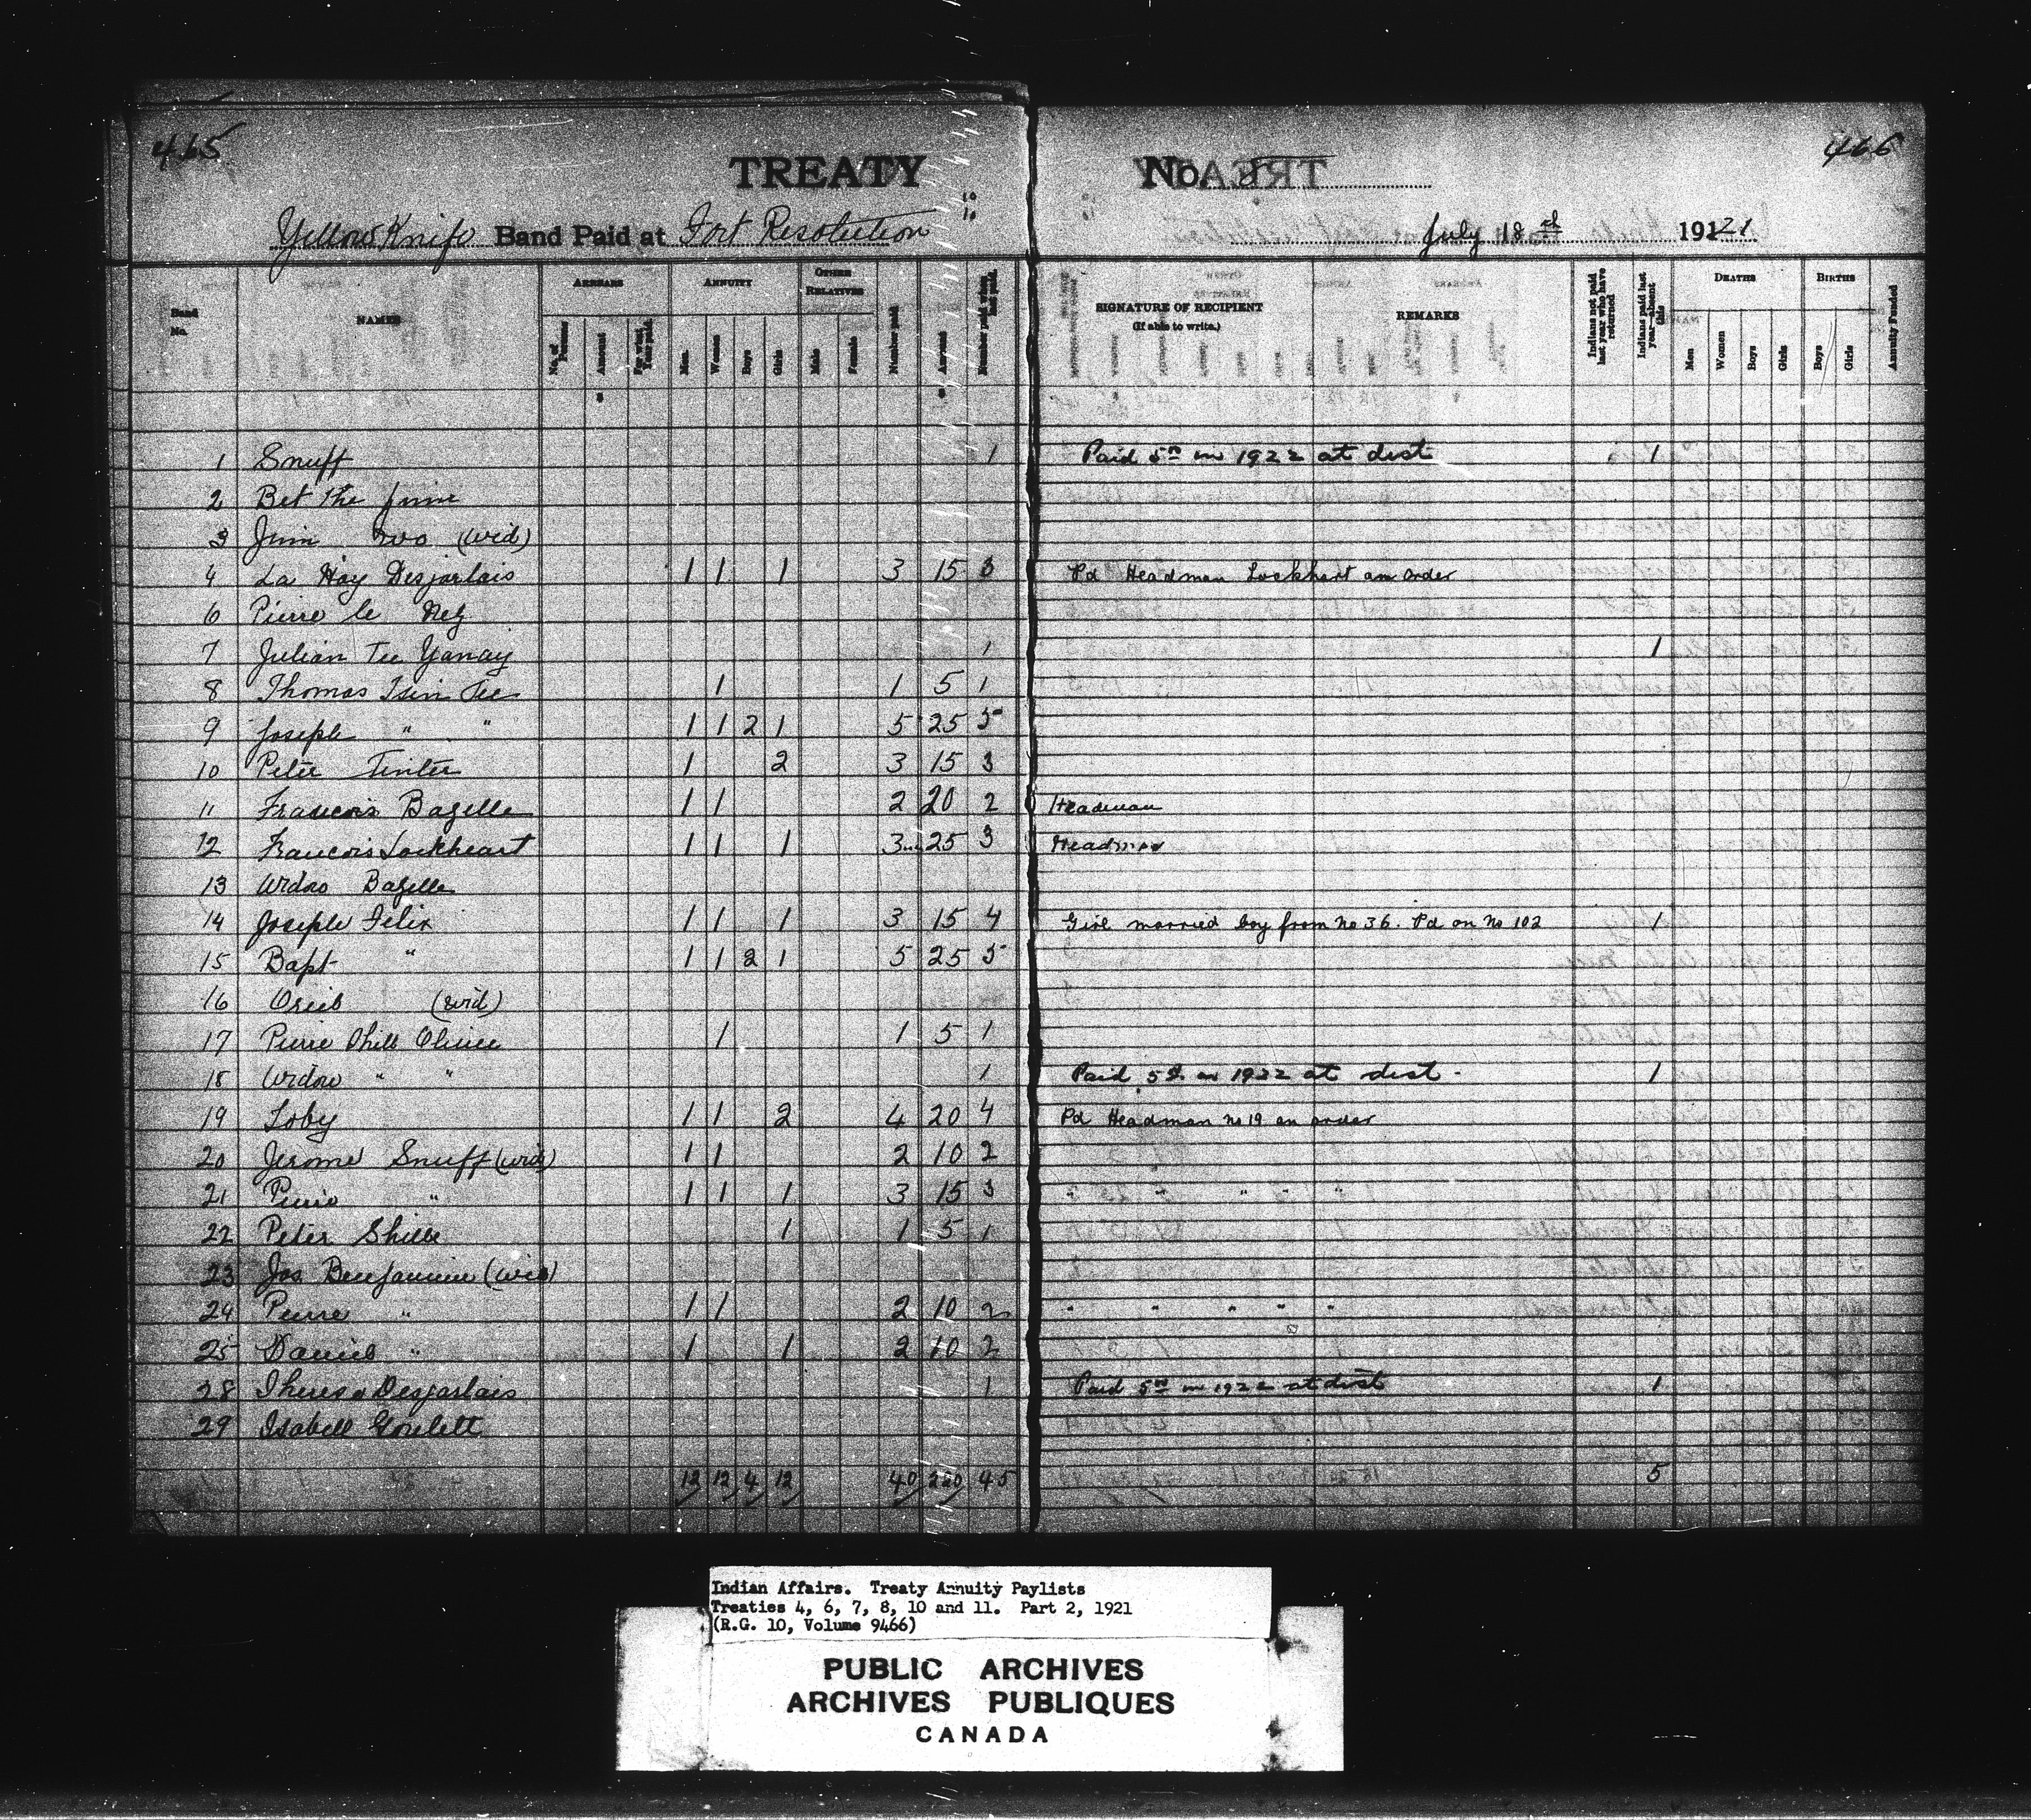 465
466
TREATY No. 8
Yellow Knife Band Paid at Fort Resolution July 18th 1921
Band No. NAMES ARREARS ANNUITY OTHER RELATIVES SIGNATURE OF RECIPIENT REMARKS DEATHS BIRTHS
(If able to write.)
No. of Persons Amount For what Year paid. Men. Women Boys Girls Male Female Number paid Amount Number paid when last paid. Indians not paid last year who have returned Indians paid last year—absent this Men Women Boys Girls Boys Girls Annuity Funded
$ $
1 Snuff 1 Paid 5.00 in 1922 at dist 1
2 Bet the
3 (wid)
4 La Hay Desjarlais 1 1 1 3 15 3 Pd Headman Lockhart on order
6 Pierre le Nez
7 Julian Tee Yanay 1 1
8 Thomas Tsin Tee 1 1 5 1
9 Joseph " " 1 1 2 1 5 25 5
10 Peter Tinter 1 2 3 15 3
11 Francois Bazelle 1 1 2 20 2 Headman
12 Francois Lockheart 1 1 1 3 25 3 Headman
13 Widow Bazelle
14 Joseph Felix 1 1 1 3 15 4 Girl married boy from No 36. Pd on No 102 1
15 Bapt " 1 1 2 1 5 25 5
16 (wid)
17 Pierre 1 1 5 1
18 Widow " " 1 Paid 5.00 in 1922 at dist. 1
19 Toby 1 1 2 4 20 4 Pd Headman no 19 on order
20 Jerome Snuff (wid) 1 1 2 10 2
21 Pierre " 1 1 1 3 15 3 " " " " "
22 Peter Shille 1 1 5 1
23 Jos. Benjamine (wid)
24 Pierre " 1 1 2 10 2 " " " " "
25 Daniel " 1 1 2 10 2
28 Theresa Desjarlais 1 Paid 5.00 in 1922 at dist 1
29 Isabell Goulett
12 12 4 12 40 220 45 5
Indian Affairs. Treaty Annuity Paylists
Treaties 4, 6, 7, 8, 10 and 11. Part 2, 1921
(R.G. 10, Volume 9466)
PUBLIC ARCHIVES
ARCHIVES PUBLIQUES
CANADA